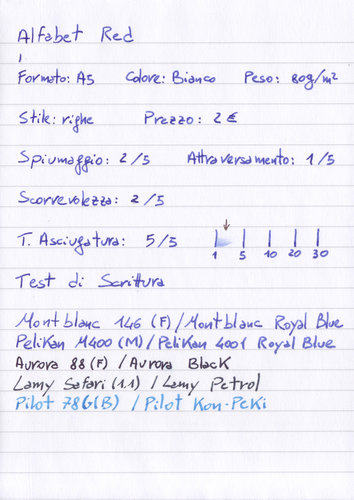 Alfabet Red
Formato: A5 Colore: Bianco Peso: 80g/m²
Stile: righe Prezzo: 2 €
Spiumaggio: 2/5 Attraversamento: 1/5
Scorrevolezza: 2/5
T. Asciugatura: 5/5
1 5 10 20 30
Test di Scrittura
Montblanc 146 (F) / Montblanc Royal Blue
Pelikan M400 (M) / Pelikan 4001 Royal Blue
Aurora 88 (F) / Aurora Black
Lamy Safari (1.1) / Lamy Petrol
Pilot 78G (B) / Pilot Kon-Peki